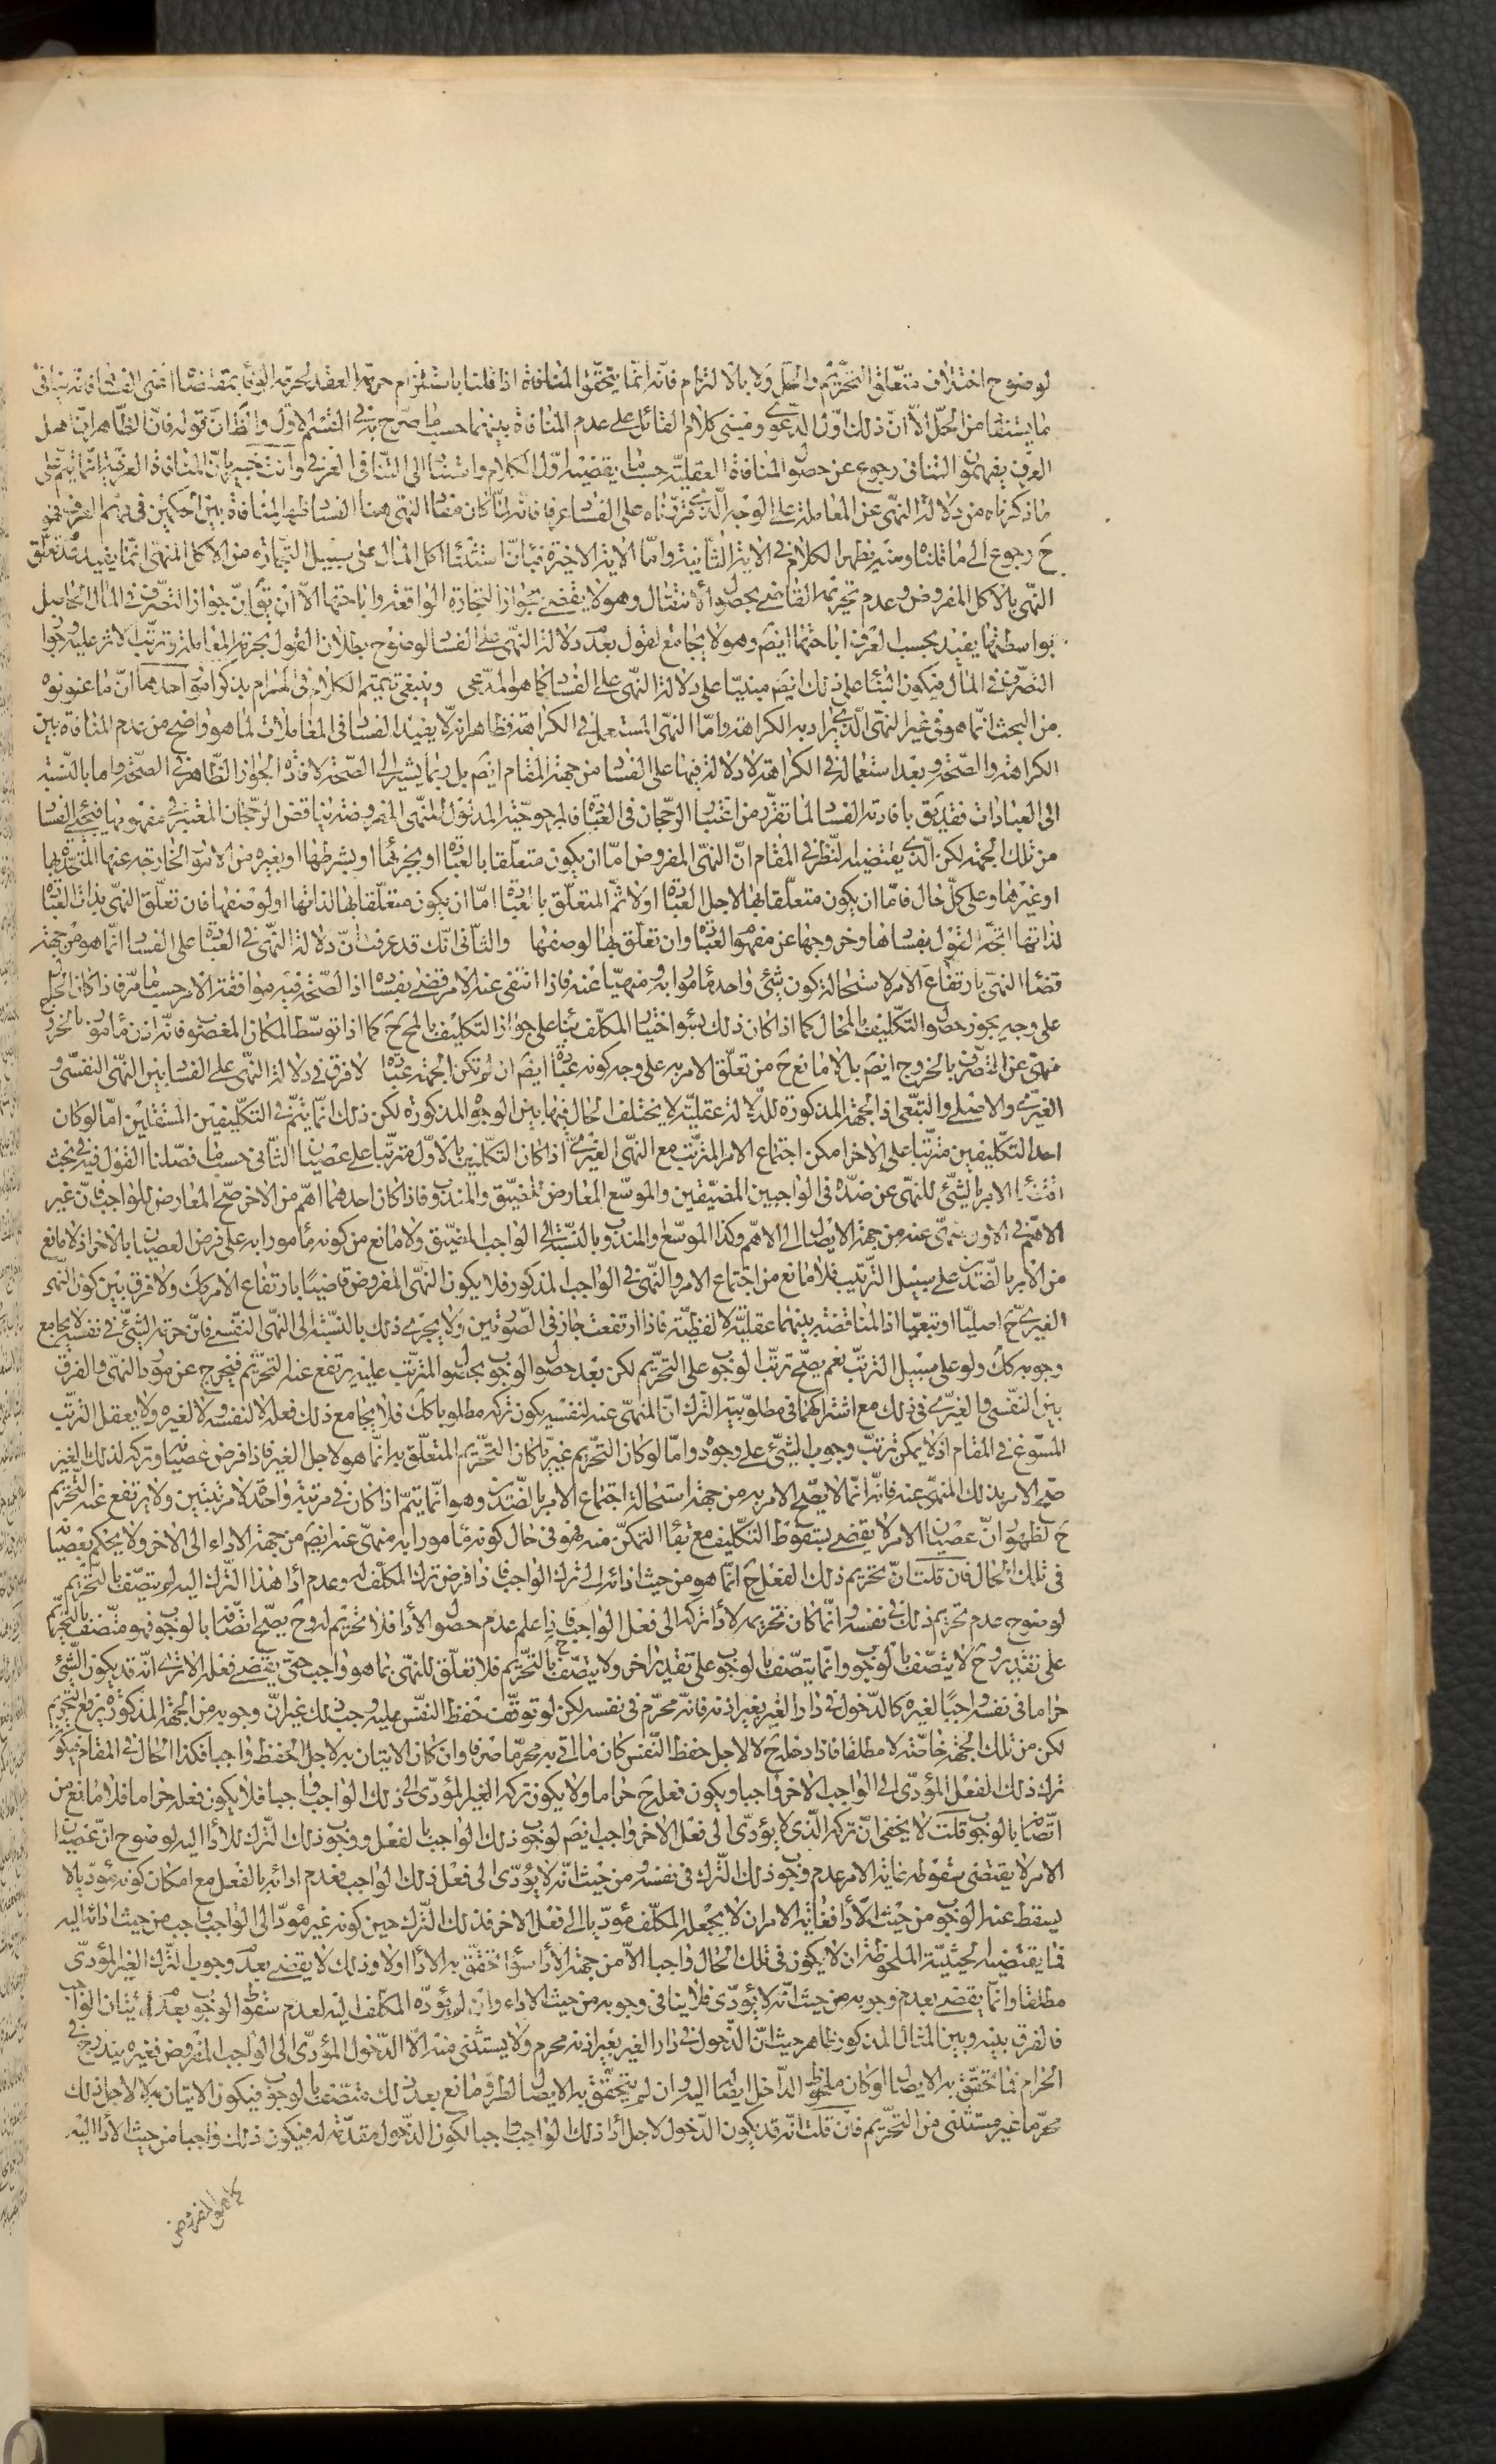 لوضوح اختلاف متعلق التحريم والحل ولا بالالتزام فانه انما يتحقق المنافاة اذا قلنا باستلزام حرمة العقد لحرمة الوفاء بمقتضاه اعنى الفساد فانه ينافى
ما يستفاد من الحل الا ان ذلك اول الدعوى ومبنى كلام القائل على عدم المنافاة بينهما حسبما صرح به فى القسم الاول والظ ان قوله فان الظاهر ان اهل
العرف يفهمون التنافى رجوع عن حصول المنافاة العقلية حسبما يقتضيه اول الكلام واستناد الى التنافى العرفى وانت خبير بان المنافاة العرفية انما يتم على
ما ذكرناه من دلالة النهى عن المعاملة على الوجه الذى قررناه على الفساد عرفا فانه لما كان مفاد النهى هنا الفساد فهم المنافاة بين الحكمين فى فهم العرف فهو
ح رجوع الى ما قلناه ومنه يظهر الكلام فى الاية الثانية واما الاية الاخيرة فبان استثناء اكل المال على سبيل التجارة من الاكل المنهى انما يفيد عدم تعلق
النهى بالاكل المفروض وعدم تحريمه القاضى بحصول الانتقال وهو لا يقضى بجواز التجارة الواقعة واباحتها الا ان يق ان جواز التصرف فى المال الحاصل
بواسطتها يفيد بحسب العرف اباحتها ايضم وهو لا يجامع القول بعدم دلالة النهى على الفساد لوضوح بطلان القول بحرمة المعاملة وترتب الاثر عليه وجواز
التصرف فى المال فيكون البناء على ذلك ايضم مبنيا على دلالة النهى على الفساد كما هو المدعى وينبغى تتميم الكلام فى المرام بذكر امور احدها ان ما عنونوه
من البحث انما هو فى غير النهى الذى يراد به الكراهة واما النهى المستعمل فى الكراهة فظاهر انه لا يفيد الفساد فى المعاملات لما هو واضح من عدم المنافاة بين
الكراهة والصحة وبعد استعماله فى الكراهة لا دلالة فيها على الفساد من جهة المقام ايضم بل ربما يشير الى الصحة لافادة الجواز الظاهر فى الصحة واما بالنسبة
الى العبادات فقد يق بافادته الفساد لما تقرر من اعتبار الرجحان فى العبادة فالمرجوحية المدلول للنهى المفروضة يناقض الرجحان المعتبر فى مفهومها فيجئ الفساد
من تلك الجهة لكن الذى يقتضيه النظر فى المقام ان النهى المفروض اما ان يكون متعلقا بالعبادة او بجزئها او بشرطها او بغيره من الامور الخارجة عنها المتحدة بها
او غيرها وعلى كل حال فاما ان يكون متعلقا بها لاجل العبادة اولا ثم المتعلق بالعبادة اما ان يكون متعلقا بها لذاتها او لوصفها فان تعلق النهى بذات العبادة
لذاتها اتجه القول بفسادها وخروجها عن مفهوم العبادة وان تعلق بها لوصفها والثانى انك قد عرفت ان دلالة النهى فى العبادة على الفساد انما هو من جهة
قضاء النهى بارتفاع الامر لاستحالة كون شئ واحد مأمورا به ومنهيا عنه فاذا انتفى عنه الامر قضى بفساده اذ الصحة فيه موافقة الامر حسبما مر فاذا كان الحال
على وجه يجوز حصول التكليف بالمحال كما اذا كان ذلك بسوء اختيار المكلف بناء على جواز التكليف بالمح ح كما اذا توسط المكان المغصوب فانه اذن مأمور بالخروج
منهى عن التصرف بالخروج ايضم بل لا مانع ح من تعلق الامر به على وجه كونه عبادة ايضم ان لم تكن الجهة عبادة لا فرق فى دلالة النهى على الفساد بين النهى النفسى و
الغيرى والاصلى والتبعى اذ الجهة المذكورة للدلالة عقلية لا يختلف الحال فيها بين الوجوه المذكورة لكن ذلك انما يتم فى التكليفين المستقلين اما لو كان
احد التكليفين مترتبا على الاخر امكن اجتماع الامر المترتب مع النهى الغيرى اذا كان التكليف بالاول مترتبا على عصيان الثانى حسبما فصلنا القول فيه فى بحث
اقتضاء الامر بالشئ للنهى عن ضده فى الواجبين المضيقين والموسع المعارض للمضيق والمندوب فاذا كان احدهما اهم من الاخر صح المعارض للواجب فان غير
الاهم فى الاول منهى عنه من جهة الايصال الى الاهم وكذا الموسع والمندوب بالنسبة الى الواجب المضيق ولا مانع من كونه مأمورا به على فرض العصيان بالاخر اذ لا مانع
من الامر بالضدين على سبيل الترتيب فلا مانع من اجتماع الامر والنهى فى الواجب المذكور فلا يكون النهى المفروض قاضيا بارتفاع الامر كك ولا فرق بين كون النهى
الغيرى ح اصليا او تبعيا اذ المناقضة بينهما عقلية لا لفظية فاذا ارتفعت جاز فى الصورتين ولا يجرى ذلك بالنسبة الى النهى النفسى فان حرمة الشئ فى نفسه لا يجامع
وجوبه كك ولو على سبيل الترتب نعم يصح ترتب الوجوب على التحريم لكن بعد حصول الوجوب بحصول المترتب عليه يرتفع عنه التحريم فيخرج عن مورد النهى والفرق
بين النفسى والغيرى فى ذلك مع اشتراكهما فى مطلوبية الترك ان المنهى عنه لنفسه يكون تركه مطلوبا كك فلا يجامع ذلك فعله لا لنفسه ولا لغيره ولا يعقل الترتب
المسوغ فى المقام اذ لا يمكن ترتب وجوب الشئ على وجوده واما لو كان التحريم غيريا كان التحريم المتعلق به انما هو لاجل الغير فاذا فرض عصيانه وتركه لذلك الغير
صح الامر بذلك المنهى عنه فانه انما لا يصح الامر به من جهة استحالة اجتماع الامر بالضدين وهو انما يتم اذا كان فى مرتبة واحدة لا مرتبتين ولا يرتفع عنه التحريم
ح لظهور ان عصيان الامر لا يقضى بسقوط التكليف مع بقاء التمكن منه فهو فى حال كونه مأمورا به منهى عنه ايضم من جهة الاداء الى الاخر ولا يحكم بعصيانه
فى تلك الحال فان قلت ان تحريم ذلك الفعل ح انما هو من حيث ادائه الى ترك الواجب فاذا فرض ترك المكلف له وعدم اداء هذا الترك اليه لم يتصف بالتحريم
لوضوح عدم تحريم ذلك فى نفسه وانما كان تحريمه لاداء تركه الى فعل الواجب فاذا علم عدم حصول الاداء فلا تحريم له وح يصح اتصافه بالوجوب فهو متصف بالتحريم
على تقدير وح لا يتصف بالوجوب وانما يتصف بالوجوب على تقدير اخر ولا يتصف ح بالتحريم فلا تعلق للنهى بما هو واجب حتى يقضى فعله الا ترى انه قد يكون الشئ
حراما فى نفسه واجبا لغيره كالدخول فى دار الغير بغير اذنه فانه محرم فى نفسه لكن لو توقف حفظ النفس عليه وجب ذلك غير ان وجوبه من الجهة المذكورة يرفع التحريم
لكن من تلك الجهة خاصة لا مطلقا فاذا دخله ح لا لاجل حفظ النفس كان ما اتى به محرما صرفا وان كان الاتيان به لاجل الحفظ واجبا فكذا الحال فى المقام فيكون
ترك ذلك الفعل المؤدى الى الواجب الاخر واجبا ويكون فعله ح حراما ولا يكون تركه الغير المؤدى الى ذلك الواجب واجبا فلا يكون فعله حراما فلا مانع من
اتصافه بالوجوب قلت لا يخفى ان تركه الذى لا يؤدى الى فعل الاخر واجب ايضم لوجوب ذلك الواجب بالفعل ووجوب ذلك الترك للاداء اليه لوضوح ان عصيان
الامر لا يقتضى سقوطه غاية الامر عدم وجوب ذلك الترك فى نفسه ومن حيث انه لا يؤدى الى فعل ذلك الواجب فعدم ادائه بالفعل مع امكان كونه مؤديا لا
يسقط عنه الوجوب من حيث الاداء فغاية الامر ان لا يجعله المكلف مؤديا الى فعل الاخر فذلك الترك حين كونه غير مؤد الى الواجب واجب من حيث ادائه اليه
فما يقتضيه الحيثية الملحوظة ان لا يكون فى تلك الحال واجبا الا من جهة الاداء سواء تحقق به الاداء اولا وذلك لا يقضى بعدم وجوب الترك الغير المؤدى
مطلقا وانما يقضى بعدم وجوبه من حيث انه لا يؤدى فلا ينافى وجوبه من حيث الاداء وان لم يؤده المكلف اليه لعدم سقوط الوجوب بعدم اتيان الواجب
فالفرق بينه وبين المثال المذكور ظاهر حيث ان الدخول فى دار الغير بغير اذنه محرم ولا يستثنى منه الا الدخول المؤدى الى الواجب المفروض فغيره يندرج فى
الحرام فما تحقق به الايصال او كان ملحوظ الداخل ايصاله اليه وان لم يتحقق به الايصال لطرو مانع بعد ذلك متصف بالوجوب فيكون الاتيان به لا لاجل ذلك
محرما غير مستثنى من التحريم فان قلت انه قد يكون الدخول لاجل اداء ذلك الواجب واجبا لكون الدخول مقدمة له فيكون ذلك واجبا من حيث الاداء اليه
كما هو المفروض